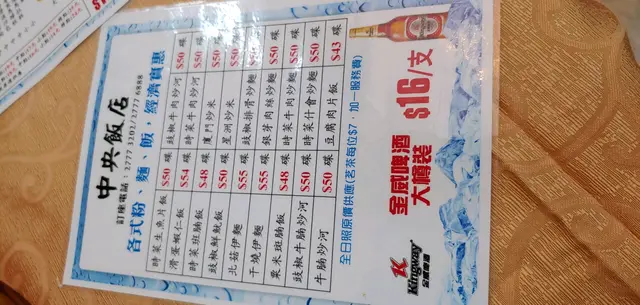 中央飯店
訂座電話：2777 3202/2777 6888
各式粉、麵、飯，經濟實惠
時菜生魚片飯 $50 碟
滑蛋蝦仁飯 $54 碟
時菜班腩飯 $48 碟
豉椒鮮魷飯 $50 碟
北菇伊麵 $55 碟
干燒伊麵 $55 碟
粟米班腩飯 $48 碟
豉椒牛腩炒河 $50 碟
牛腩炒河 $50 碟
豉椒牛肉炒河 $50 碟
時菜牛肉炒河 $50 碟
廈門炒米 $50 碟
星洲炒米 $50 碟
豉椒排骨炒麵 碟
銀芽肉絲炒麵 $50 碟
時菜牛肉炒麵 $50 碟
時菜什會炒麵 $50 碟
豆腐肉片飯 $43 碟
全日照原價供應(茗茶每位$7，加一服務費)
Kingway
金威啤酒
金威啤酒
大樽裝
$16/支